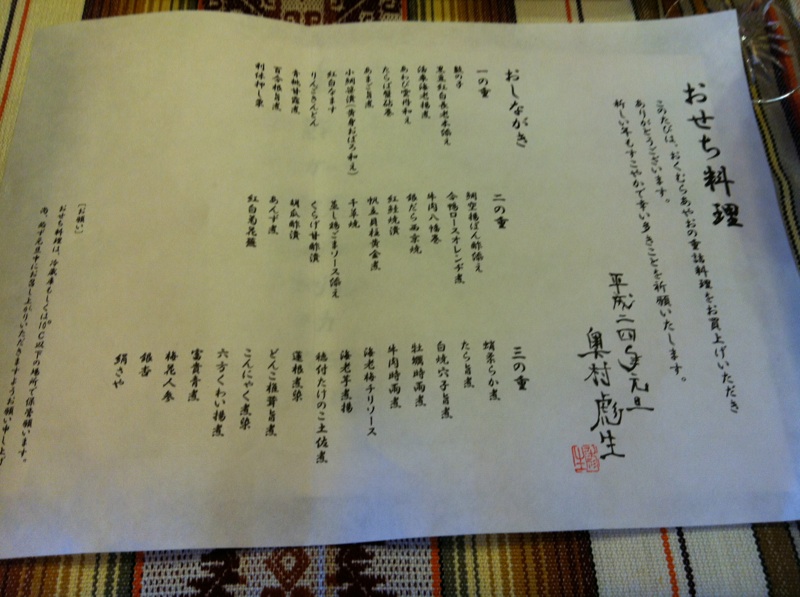 おせち料理
このたびは、おくむらあやおの重詰料理をお買上げいただき
ありがとうございます。
新しい年もすこやかで幸い多きことを祈願いたします。
平成二四年元旦
奥村彪生
おしながき
一の重
数の子
黒豆紅白長老木添え
活車海老揚煮
あわび雲丹和え
たらば蟹砧巻
あまご旨煮
小鯛笹漬(黄身おぼろ和え)
紅白なます
りんごきんとん
青梅甘露煮
百合根旨煮
利休押し栗
二の重
鯛空揚ぽん酢添え
合鴨ロースオレンヂ煮
牛肉八幡巻
銀だら西京焼
紅鮭焼漬
帆立貝柱黄金煮
千草焼
蒸し鶏ごまソース添え
くらげ甘酢漬
胡瓜酢漬
あんず煮
紅白菊花蕪
三の重
蛸柔らか煮
たら旨煮
白焼穴子旨煮
牡蠣時雨煮
牛肉時雨煮
海老梅チリソース
海老芋煮揚
穂付たけのこ土佐煮
蓮根煮染
どんこ椎茸旨煮
こんにゃく煮染
六方くわい揚煮
富貴青煮
梅花人参
銀杏
絹さや
〔お願い〕
おせち料理は、冷蔵庫もしくは10°C以下の場所で保管願います。
尚、必ず元旦中にお召し上がりいただきますようお願い申し上げ